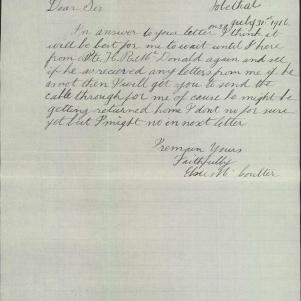 Dear Sir
July 31st 1916
In answer to your letter I think it
will be best for me to wait until I here
from Pte. H. Donald again and see
if he as received any letters from me if he
as not then I will get you to send the
cable through for me of cause he might be
getting returned home I dont no for sure
yet but I might no in next letter
I remain Yours
Faithfully
Elsie Mc Coulter